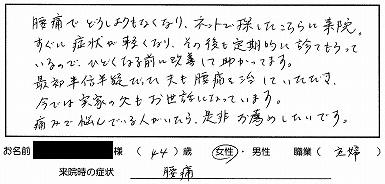 腰痛でどうしようもなくなり、ネットで探したこちらに来院。
すぐに症状が軽くなり、その後も定期的に診てもらって
いるので、ひどくなる前に改善して助かってます。
最初半信半疑だった夫も腰痛を治していただき、
今では実家の父もお世話になっています。
痛みで悩んでいる人がいたら、是非お薦めしたいです。
お名前 様 ( 44 ) 歳 女性 ・ 男性 職業 ( 主婦 )
来院時の症状 腰痛